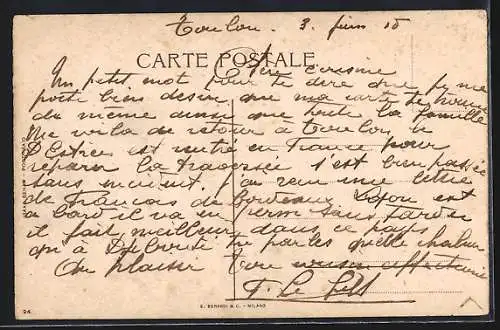 Toulon. 3. juin 10
CARTE POSTALE
Un petit mot pour te dire que je me
porte bien desire que ma carte te trouve
de meme ainsi que toute la famille
Me voila de retour a Toulon le
D'Estrée est rentré en France pour
reparer la traversée s'est bien passée
sans incident. J'ai recu une lettre
de Francois de Bordeaux Lafon est
a bord il va en perm sans tarder
il fait meilleur dans ce pays
qu'a Djibouti tu parles quelle chaleur
Au plaisir Ton affectueux
E. BERARDI & C. - MILANO
24